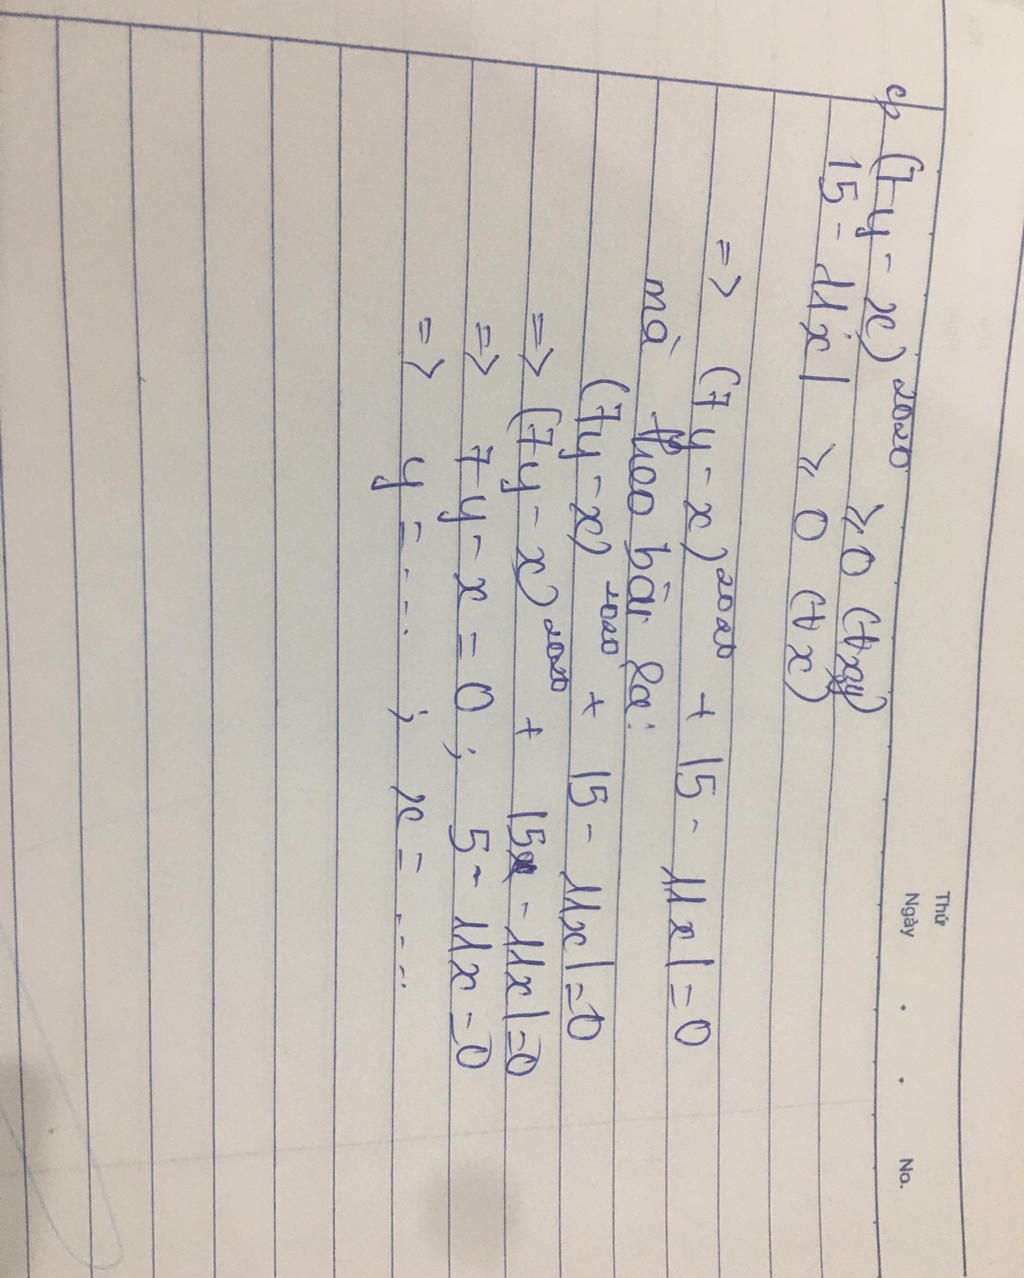 Thứ
Ngày . . No.
c, (7y - x)²⁰²⁰ ≥ 0 (∀xy)
|5 - 11x| ≥ 0 (∀x)
=> (7y - x)²⁰²⁰ + |5 - 11x| = 0
mà theo bài ra:
(7y - x)²⁰²⁰ + |5 - 11x| = 0
=> (7y - x)²⁰²⁰ + |5 - 11x| = 0
=> 7y - x = 0; 5 - 11x = 0
=> y = ....; x = ....